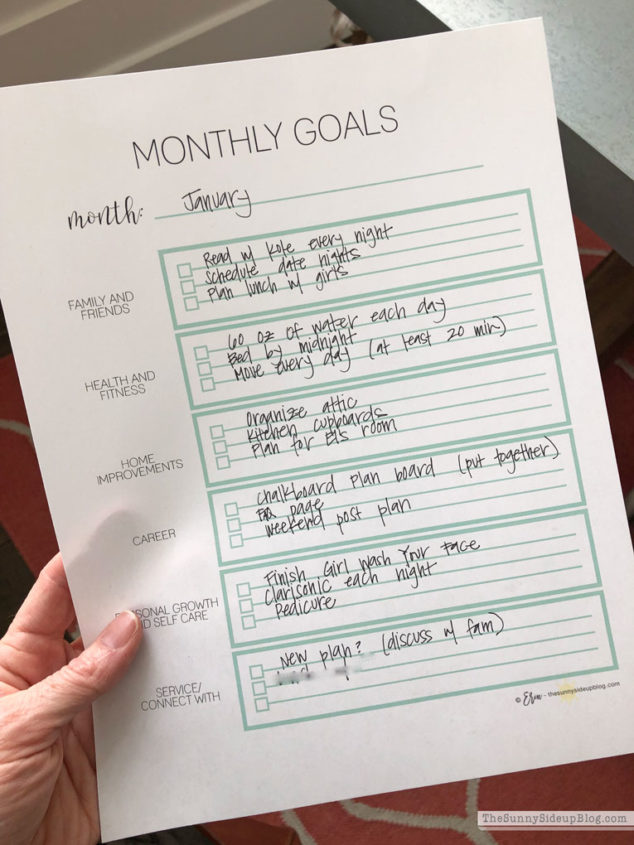 MONTHLY GOALS
month: January
FAMILY AND FRIENDS
Read w/ Kole every night
Schedule date nights
Plan lunch w/ girls
HEALTH AND FITNESS
60 oz of water each day
Bed by midnight
Move every day (at least 20 min)
HOME IMPROVEMENTS
Organize attic
Kitchen cupboards
Plan for El's room
CAREER
Chalkboard plan board (put together)
FAQ page
Weekend post plan
PERSONAL GROWTH
AND SELF CARE
Finish Girl Wash Your Face
Clarisonic each night
Pedicure
SERVICE/
CONNECT WITH
New plan? (discuss w/ fam)
© - thesunnysideupblog.com
TheSunnySideupBlog.com